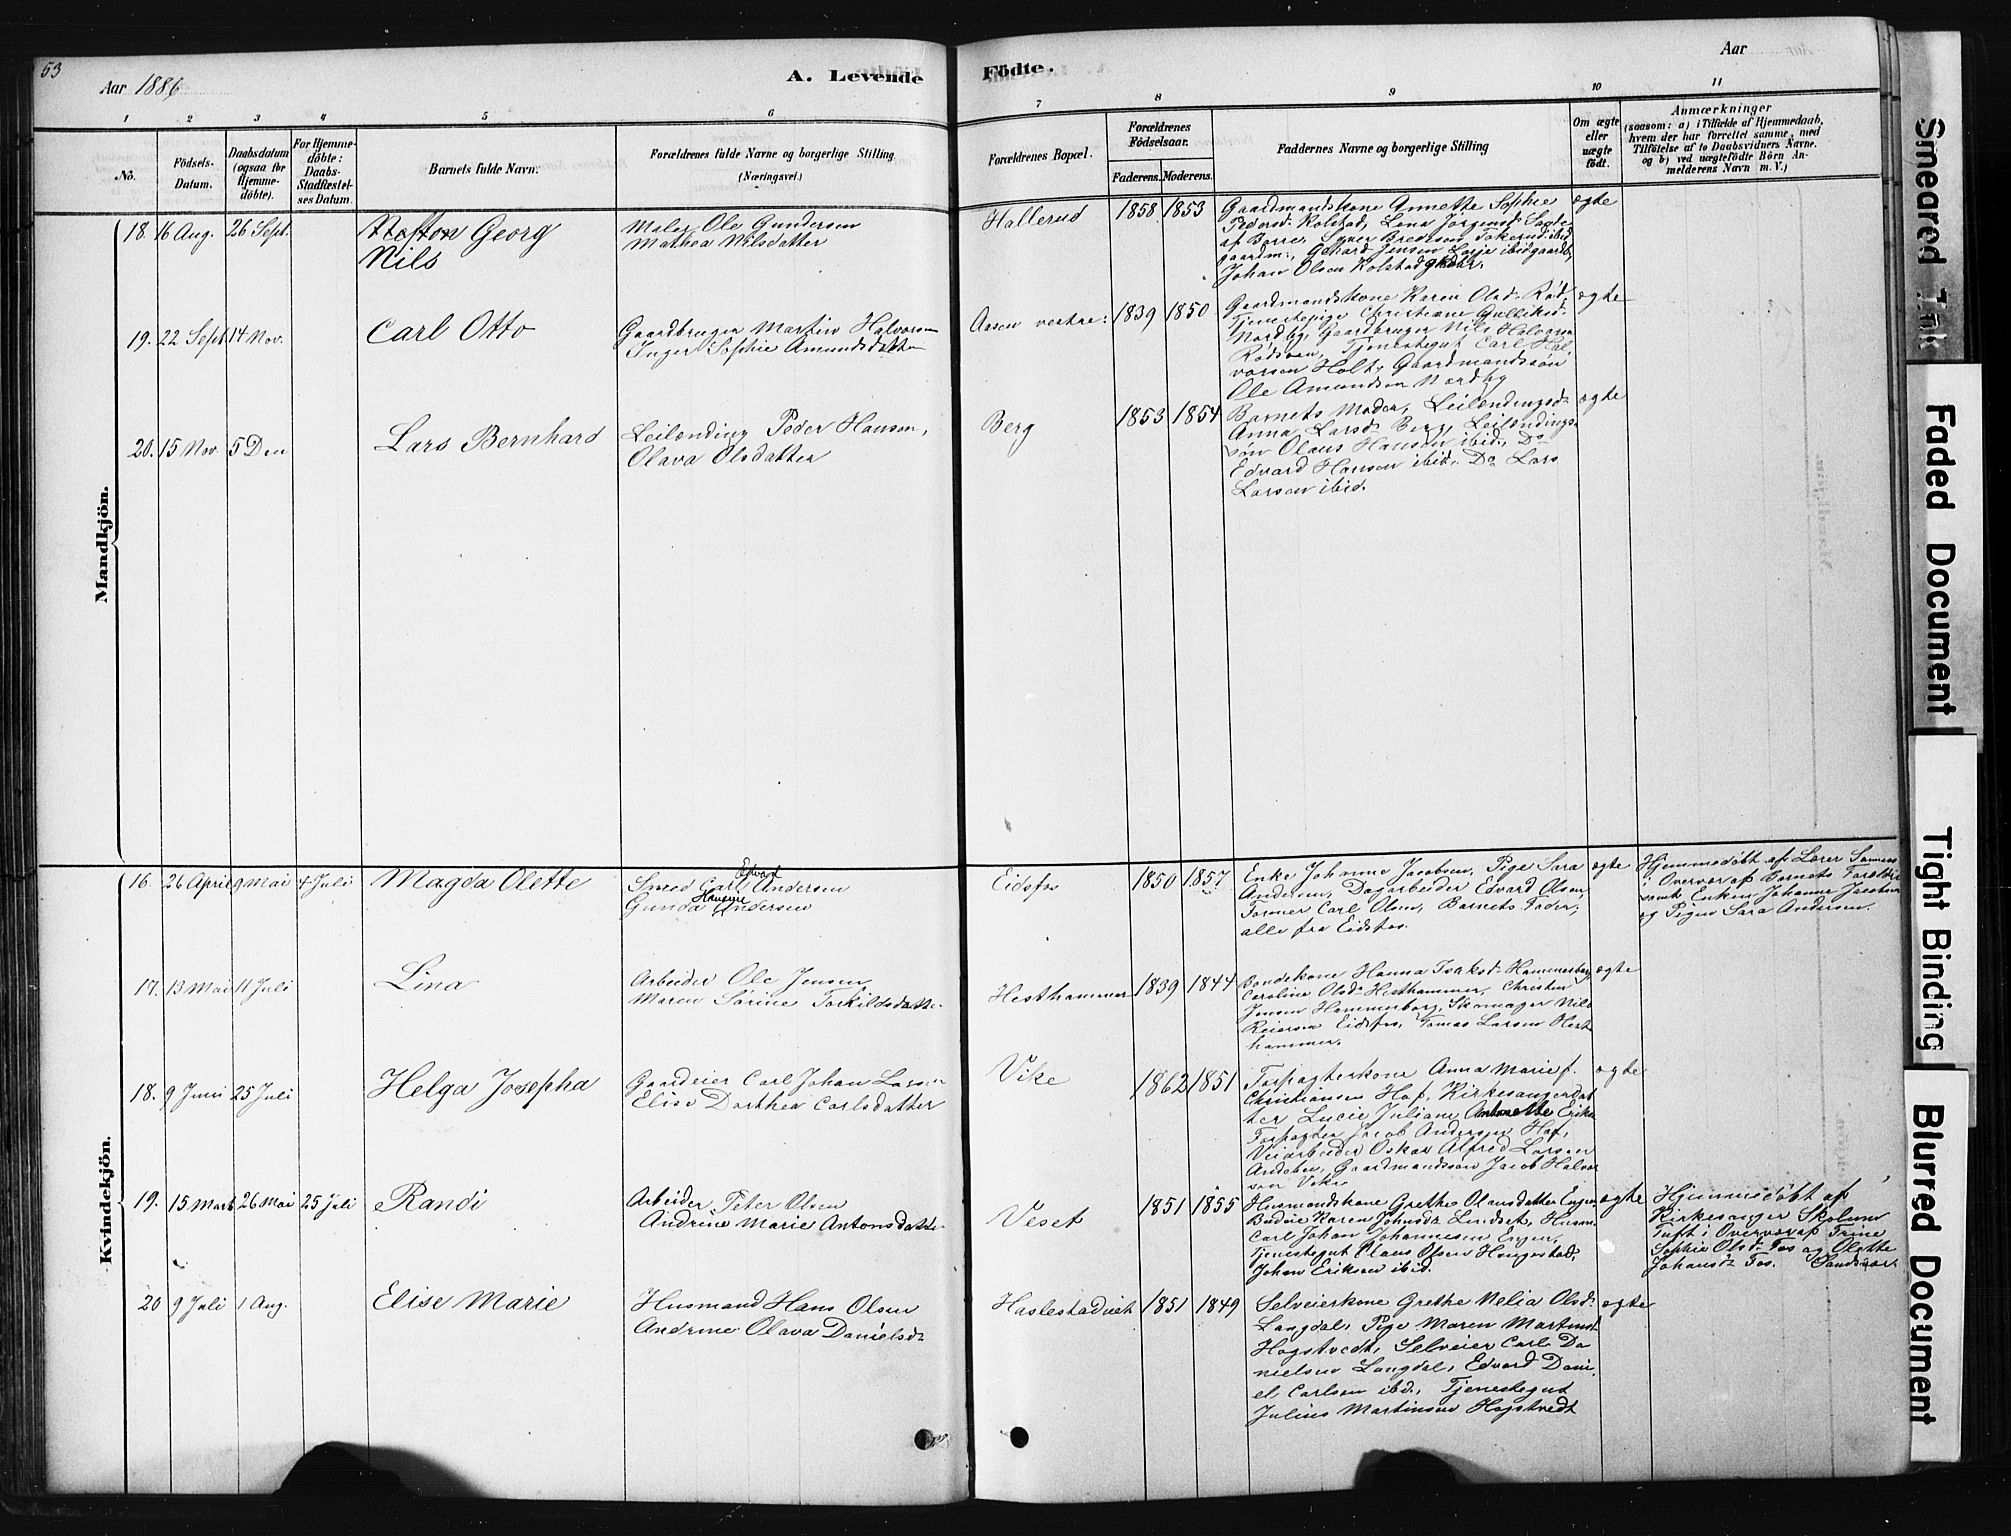 53
Aar 1886
A. Levende
Födte.
Aar
1 2 3 4 5 6 7 8 9 10 11
No.
Födsels-
Datum.
Daabsdatum
(ogsaa for
Hjemme-
döbte).
For Hjemme-
döbte:
Daabs-
Stadfæstel-
ses Datum.
Barnets fulde Navn.
Forældrenes fulde Navne og borgerlige Stilling
(Næringsvei.)
Forældrenes Bopæl.
Forældrenes
Födselsaar.
Faderens. Moderens.
Faddernes Navne og borgerlige Stilling
Om ægte
eller
uægte
födt.
Anmærkninger
(saasom: a) i Tilfælde af Hjemmedaab,
hvem der har forrettet samme, med
Tilföielse af to Daabsvidners Navne.
og b) ved uægtefödte Börn An-
melderens Navn m. V.)
Mandkjön.
18. 16 Aug. 26 Sept.
Georg
Nils
Maler Ole Gundersen
Mathea Nilsdatter
Hallerud
1858 1853
Gaardmandskone Annette Sophie
Pedersd. Kolstad, Lena Jørgensd.
af Borre,
gaardm:, Gehard Jensen
Johan Olsen Kolstad
ægte
19. 22 Sept. 14 Nov.
Carl Otto
Gaardbruger Martin Halvorsen
Inger Sophie Amundsdatter
Aasen vestre:
1839 1850
Gaardmandskone Karen Olsd. Rød,
Tjenestepige Christiane Gulliksd.
Nordby, Gaardbruger Nils Halvorsen
Rødsven, Tjenestegut Carl Hal-
vorsen Holt, Gaardmandssøn
Ole Amundsen Nordby
ægte
20. 15 Nov 5 Den
Lars Bernhard
Leilending Peder Hansen,
Olava Olsdatter
Berg
1853 1854
Barnets Moder, Leilendingsd.
Anna Larsd. Berg, Leilendings-
søn Olaus Hansen ibid, Do
Edvard Hansen ibid. Do Lars
Larsen ibid.
ægte
Kvindekjön.
16. 26 April 9 Mai 4 Juli
Magda Olette
Edvard
Smed Carl Andersen
Hansine
Gunda Andersen
Eidsfos
1850 1857
Enke Johanne Jacobsen, Pige Sara
Andersen, Dagarbeider Edvard Olsen,
Former Carl Olsen, Barnets Fader,
alle fra Eidsfos.
ægte
Hjemmedøbt af Lærer
i Overvær af Barnets Forældre
samt Enken Johanne Jacobsen
og Pigen Sara Andersen.
17. 13 Mai 11 Juli
Lina
Arbeider Ole Jensen
Maren Sørine Torkildsdatter
Hesthammer
1839 1844
Bondekone Hanna Isaksd. Hammerborg
Caroline Olsd. Hesthammer, Christen
Jensen Hammerborg, Skomager Nils
Reiersen Eidsfos, Tomas Larsen Hest-
hammer.
ægte
18. 9 Juni 25 Juli
Helga Josepha
Gaardeier Carl Johan Larsen
Elise Dorthea Carlsdatter
Vike
1862 1851
Forpagterkone Anna Marie f.
Christiansen Hof, Kirkesangerdat-
ter Lucie Juliane Antonette Eriks
Forpagter Jacob Andersen Hof,
Veiarbeider Oskar Alfred Larsen
Andeben, Gaardmandssøn Jacob Halvor
sen Vike
ægte
19. 15 Marts 26 Mai 25 Juli
Randi
Arbeider Peter Olsen
Andrine Marie Antonsdatter
Veset
1851 1855
Husmandskone Grethe Olausdatter Engen
Budeie Karen Johnsd. Lindset, Husm.
Carl Johan Johannesen Engen,
Tjenestegut Claus Olsen Hengestad,
Johan Eriksen ibid.
ægte
Hjemmedøbt af
Kirkesanger Skolum
Tuft i Overvær af Trine
Sophie Olsd. Fos og Olette
Johansd. Fos.
20 9 Juli 1 Aug.
Elise Marie
Husmand Hans Olsen
Andrine Olava Danielsd.
Haslestadeiet
1851 1849
Selveierkone Grethe Nelia Olsd.
Langdal, Pige Maren Martinsd.
Hogstvedt, Selveier Carl Da
nielsen Langdal, Edvard Dani-
el Carlsen ibid., Tjenestegut
Julius Martinsen Hogstvedt
ægte
Smeared Ink
Faded Document
Tight Binding
Blurred Document